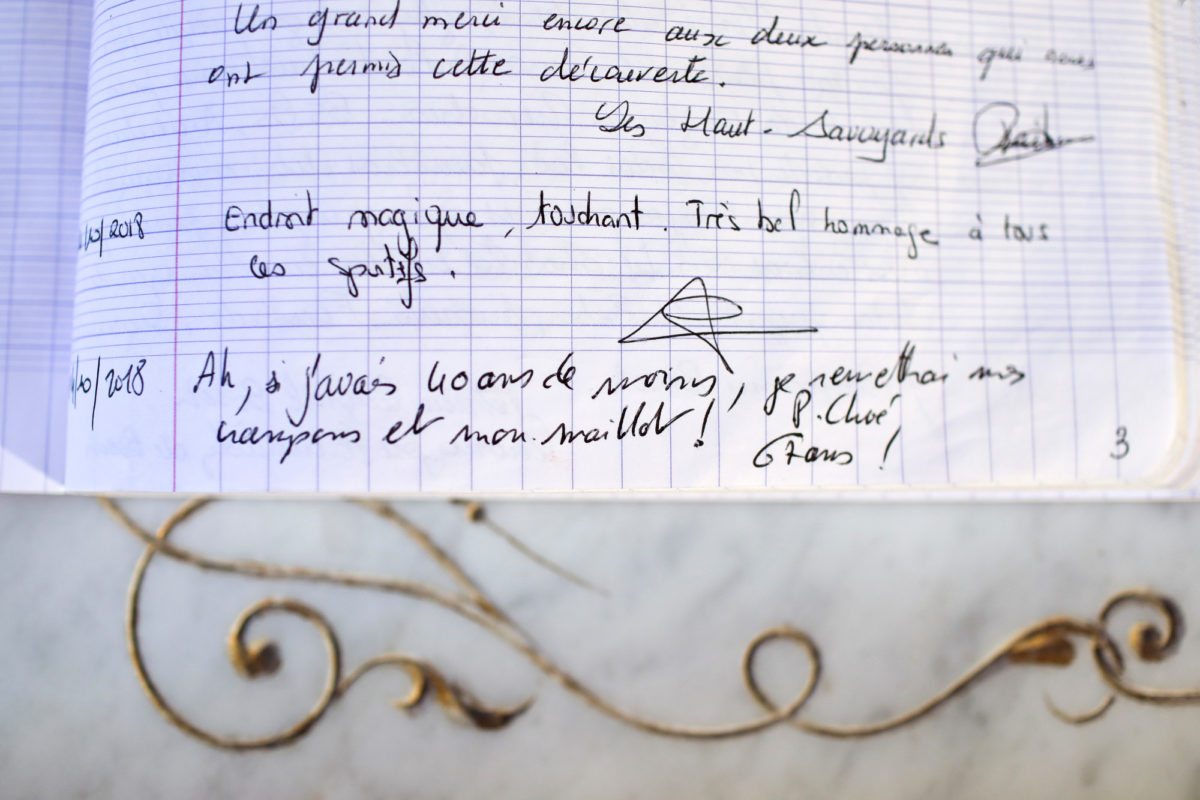 Un grand merci encore aux deux personnes qui nous
ont permis cette découverte.
Les Haut-Savoyards
/10/2018 Endroit magique, touchant. Très bel hommage à tous
ces sportifs.
/10/2018 Ah, si j'avais 40 ans de moins, je remettrai mes
crampons et mon maillot !
P. Choé
67 ans !
3